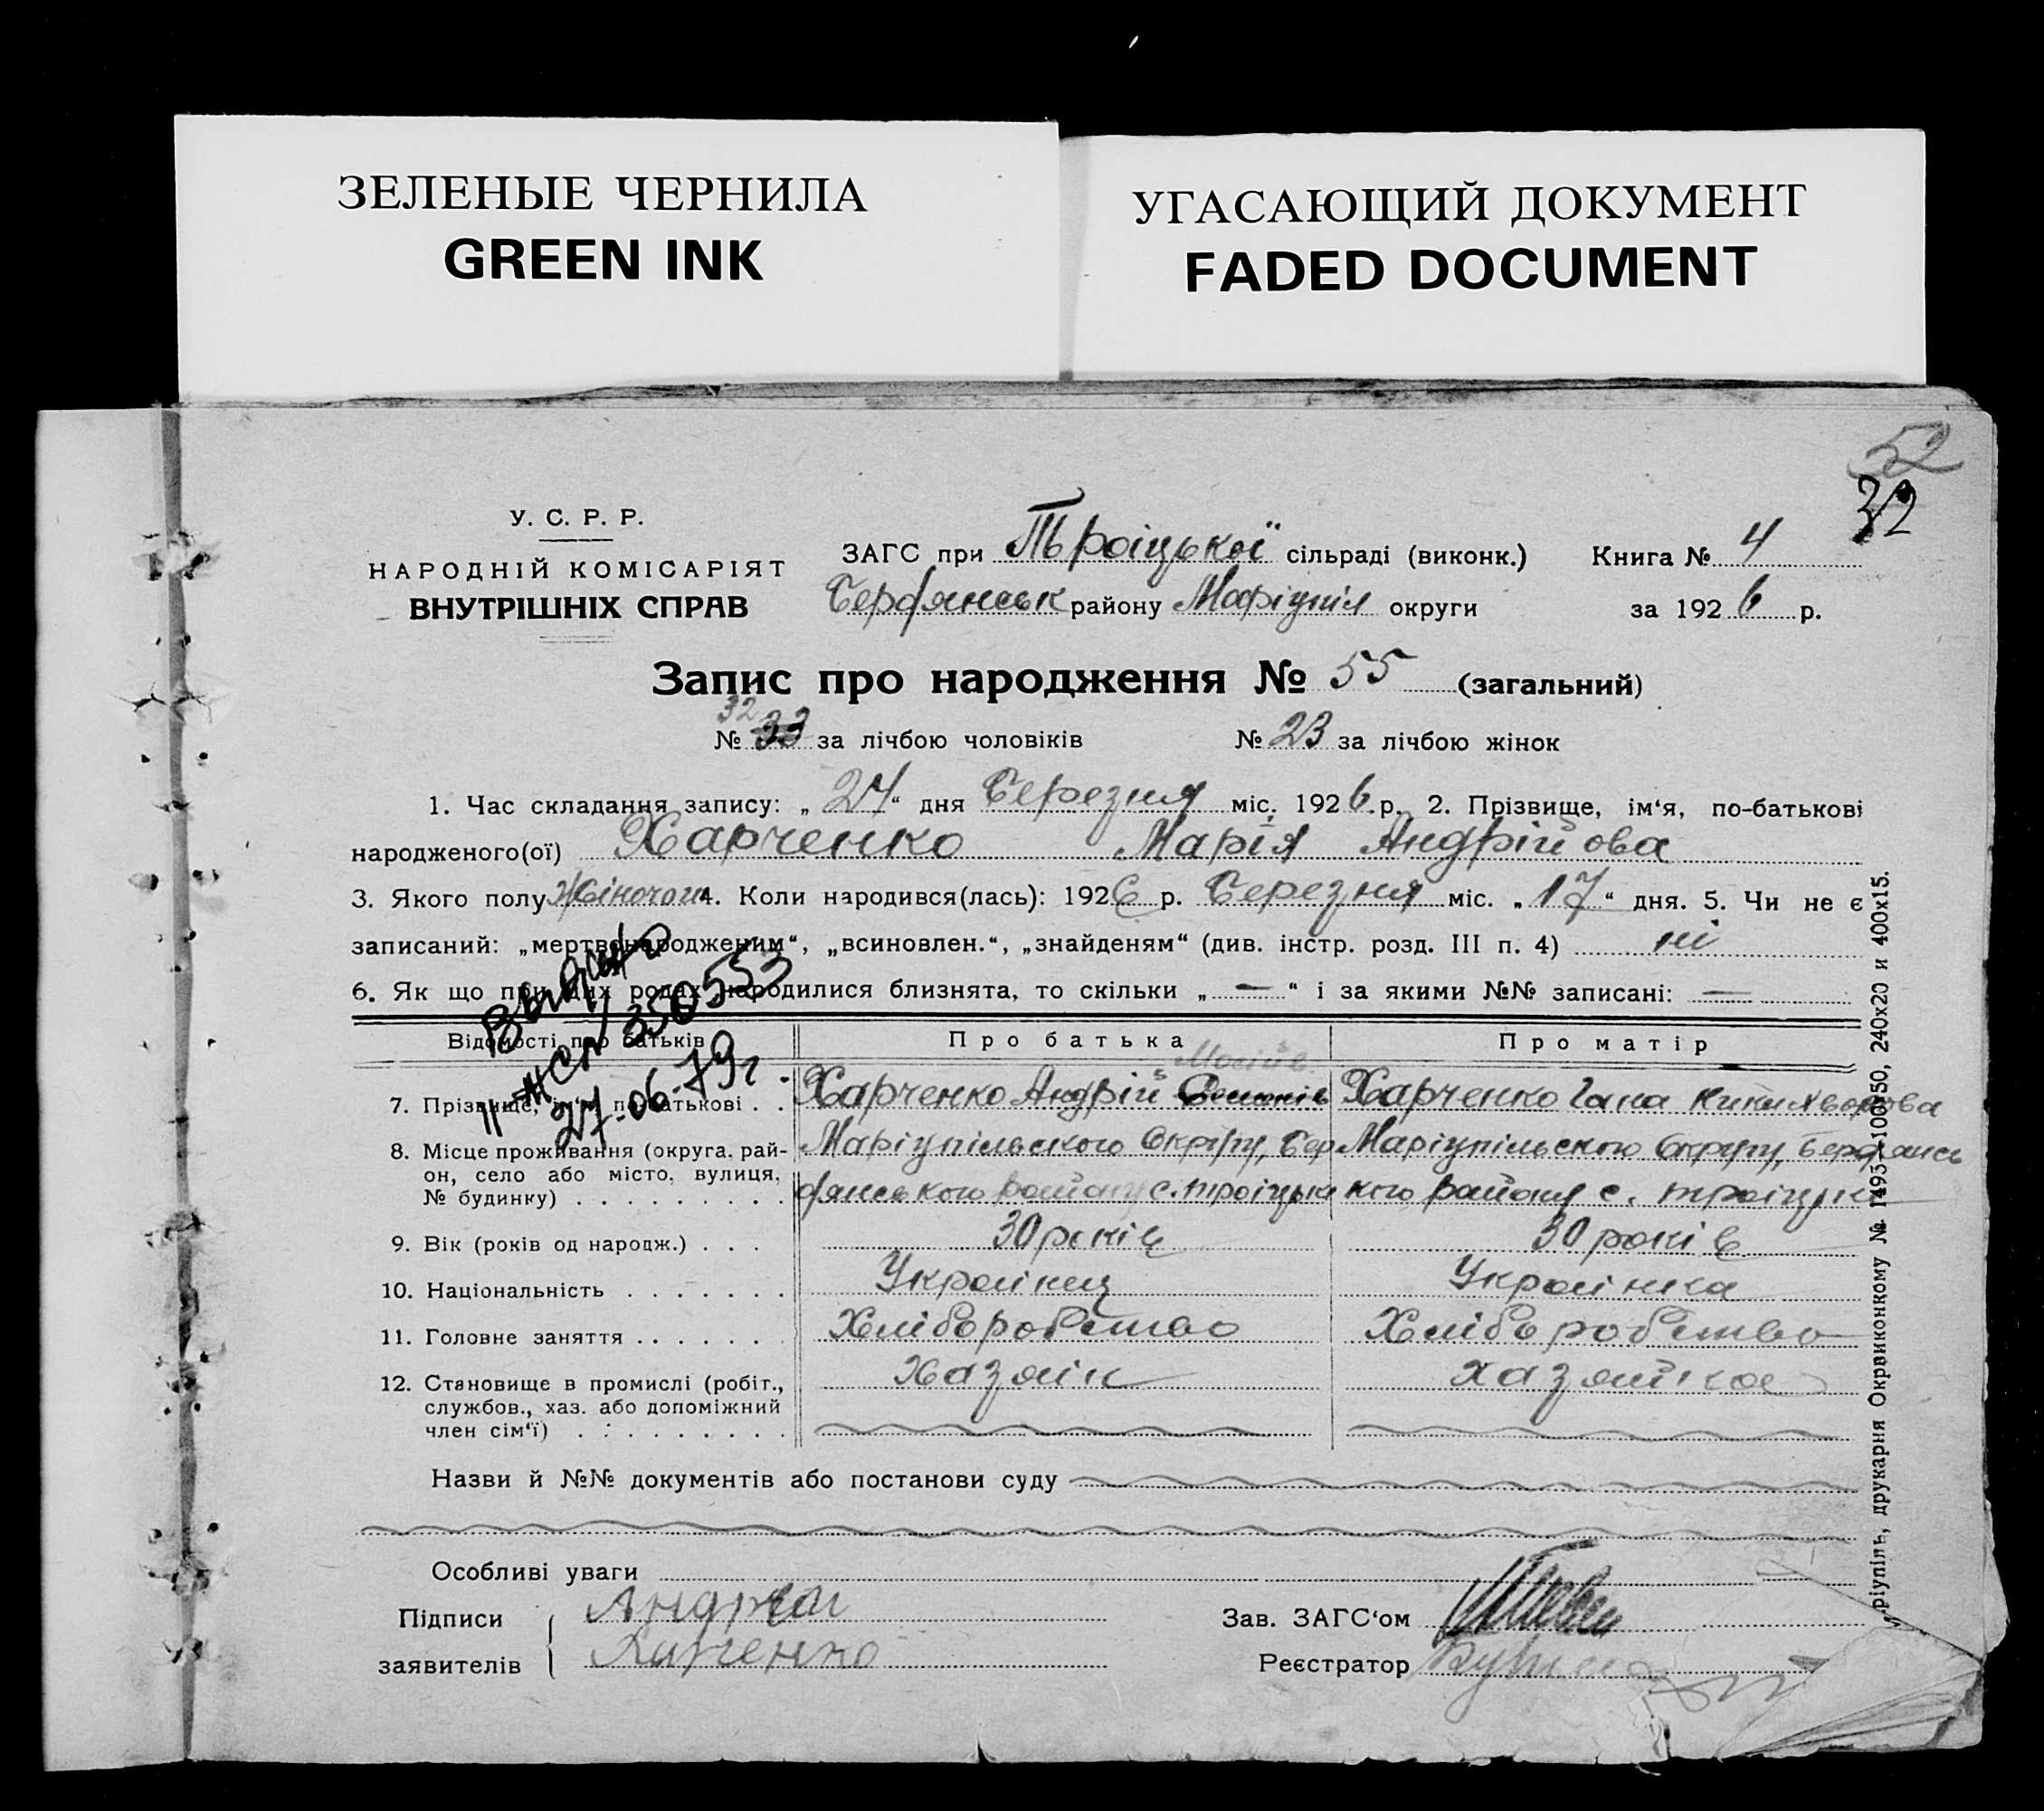 ЗЕЛЕНЫЕ ЧЕРНИЛА
GREEN INK
УГАСАЮЩИЙ ДОКУМЕНТ
FADED DOCUMENT
52
32
У. С. Р. Р.
НАРОДНІЙ КОМІСАРІЯТ
ВНУТРІШНІХ СПРАВ
ЗАГС при Тьроіцької сільраді (виконк.) Книга № 4
Бердянськ району Маріупіл округи за 1926 р.
Запис про народження № 55 (загальний)
32
№ 33 за лічбою чоловіків № 23 за лічбою жінок
1. Час складання запису: „24“ дня Березня міс. 1926 р. 2. Прізвище, ім‘я, по-батькові
народженого(ої) Харченко Марія Андрійова
3. Якого полу Жіночого 4. Коли народився(лась): 1926 р. Березня міс. „17“ дня. 5. Чи не є
записаний: „мертвонародженим“, „всиновлен.“, „знайденям“ (див. інстр. розд. III п. 4) ні
6. Як що при цих родах народилися близнята, то скільки „—“ і за якими №№ записані: —
Выдано
350553
27-06-79г.
Відомості про батьків Про батька Про матір
Мосійв
7. Прізвище, ім‘я, по-батькові . . Харченко Андрій Харченко Гана Никихворова
8. Місце проживання (округа, рай- Маріупільского Округу, Бер Маріупільского Округу, Бердянсь
он, село або місто, вулиця, дянського району с. троіцька кого району с. троіцька
№ будинку) . . . . . . . . .
9. Вік (років од народж.) . . . 30 років 30 років
10. Національність . . . . . . . Украінец Украінка
11. Головне заняття . . . . . . Хліборобство Хліборобство
12. Становище в промислі (робіт., Хазяін хазяйка
службов., хаз. або допоміжний
член сім‘ї) . . . . . . . . . .
Назви й №№ документів або постанови суду
Особливі уваги
Підписи Андрей Зав. ЗАГС‘ом
заявителів Харченко Реєстратор
ріупіль, друкарня Окрвиконкому № 1493—100/50, 240х20 и 400х15.